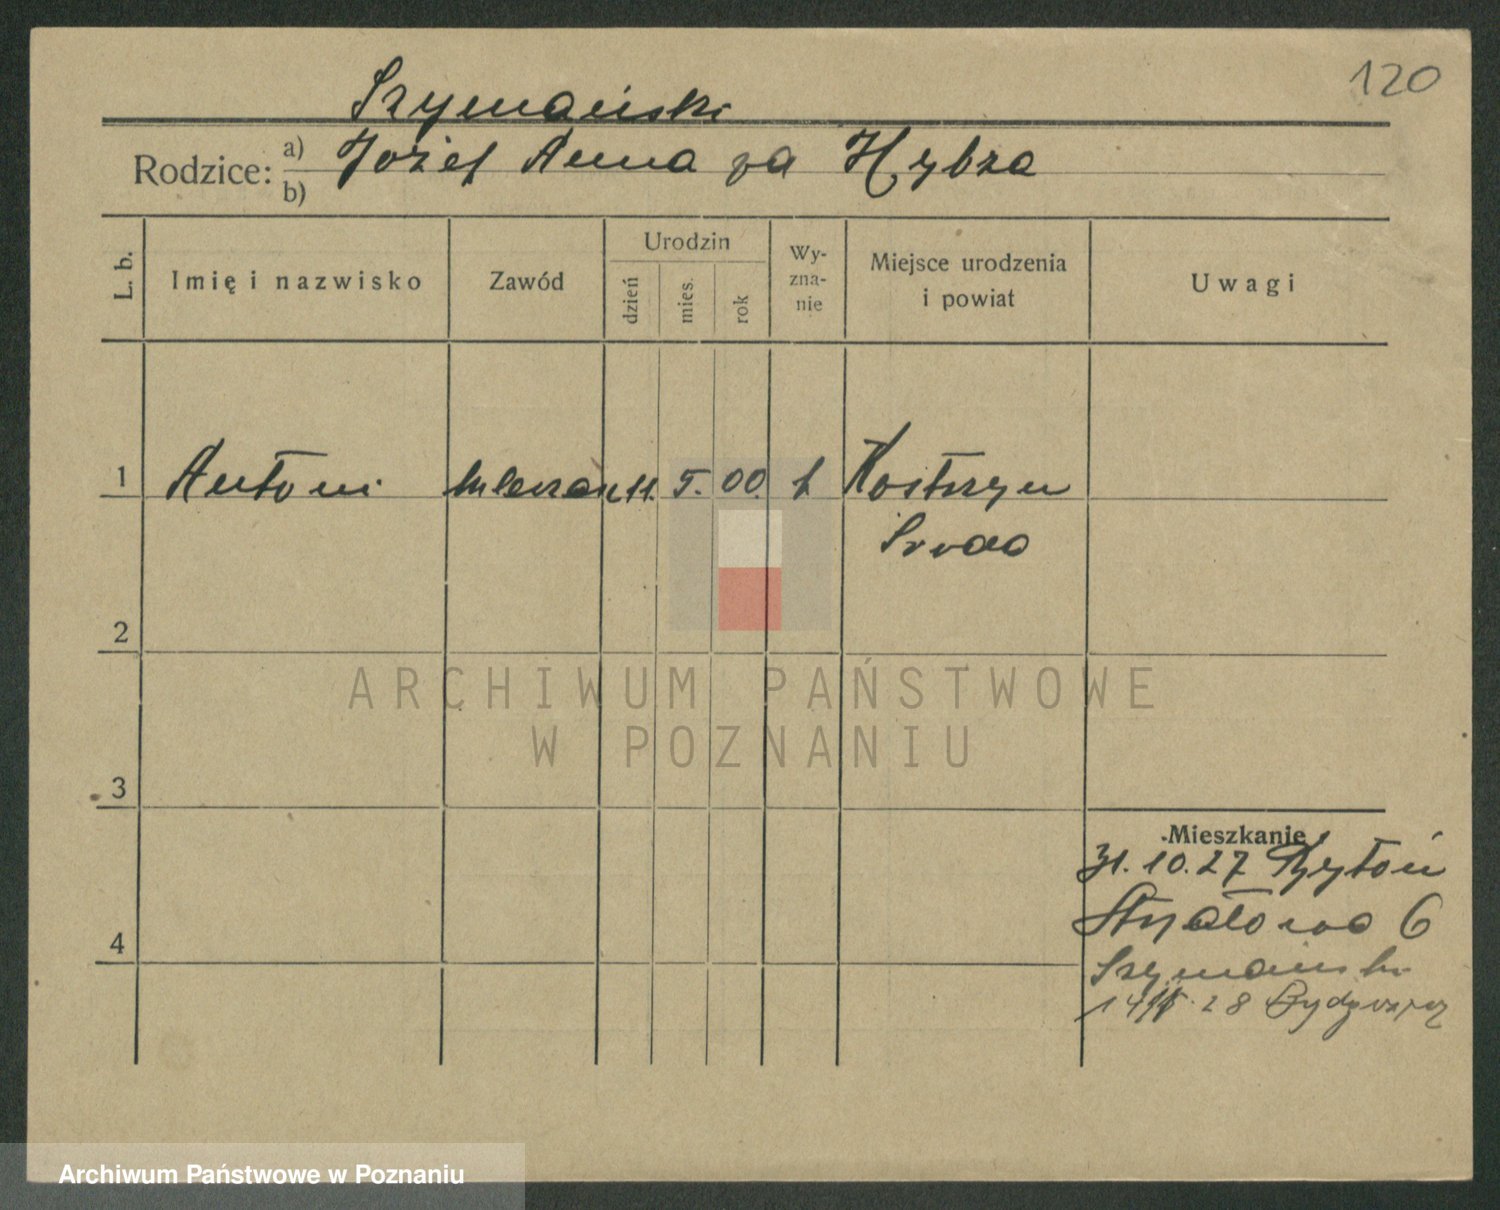 120
Szymański
Rodzice: a) Józef Anna za Hybza
b)
L. b. Imię i nazwisko Zawód Urodzin dzień mies. rok Wy-zna-nie Miejsce urodzenia i powiat Uwagi
1 Antoni mleczarz 11. 5. 00. Kostrzyn
Środa
2
ARCHIWUM PAŃSTWOWE
W POZNANIU
3
Mieszkanie
31.10.27
4
6
Szymański
28 Bydgoszcz
Archiwum Państwowe w Poznaniu